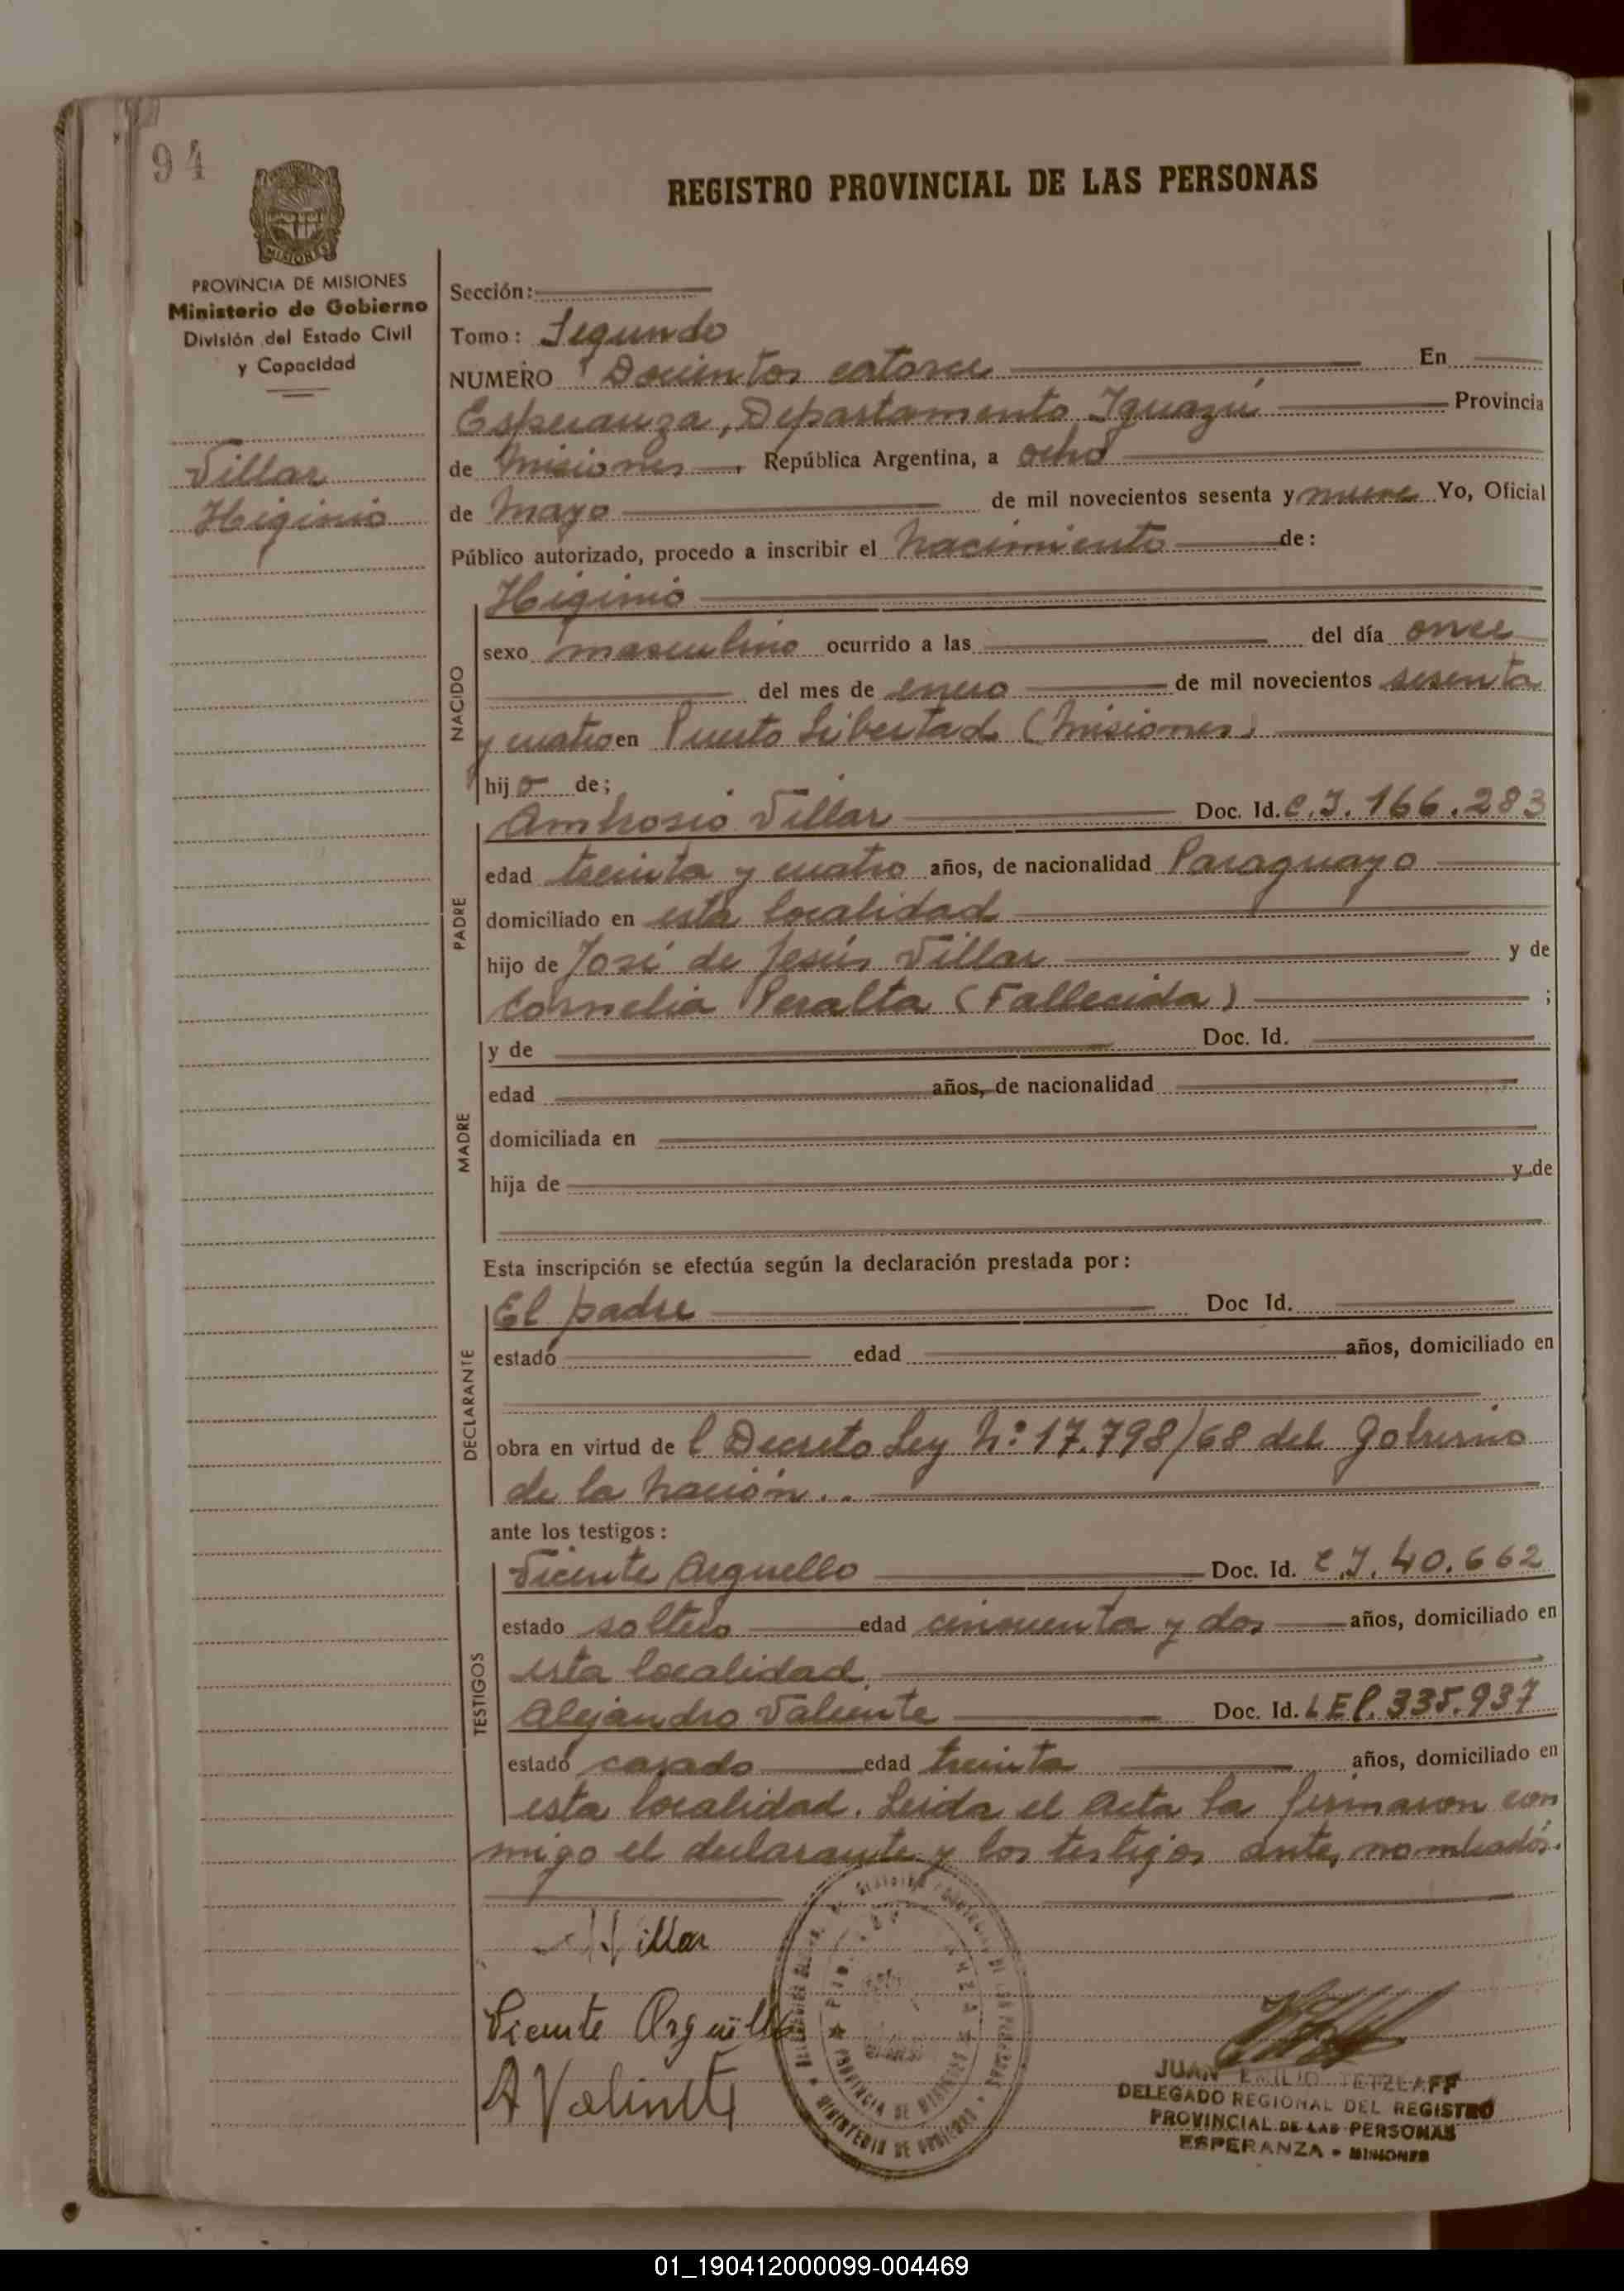 94
REGISTRO PROVINCIAL DE LAS PERSONAS
MISIONES
PROVINCIA DE MISIONES
Ministerio de Gobierno
División del Estado Civil
y Capacidad
Villar
Higinio
Sección:
Tomo: Segundo
NUMERO Docientos catorce En
Esperanza, Departamento Iguazú Provincia
de Misiones, República Argentina, a ocho
de Mayo de mil novecientos sesenta y nueve Yo, Oficial
Público autorizado, procedo a inscribir el Nacimiento de:
NACIDO
Higinio
sexo masculino ocurrido a las del día once
del mes de enero de mil novecientos sesenta
y cuatro en Puerto Libertad (Misiones)
hijo de;
PADRE
Ambrosio Villar Doc. Id. C.I. 166.283
edad treinta y cuatro años, de nacionalidad Paraguayo
domiciliado en esta localidad
hijo de José de Jesús Villar y de
Cornelia Peralta (Fallecida) ;
MADRE
y de Doc. Id.
edad años, de nacionalidad
domiciliada en
hija de y de
Esta inscripción se efectúa según la declaración prestada por:
DECLARANTE
El padre Doc Id.
estado edad años, domiciliado en
obra en virtud de l Decreto Ley N° 17.798/68 del Gobierno
de la Nación..
ante los testigos:
TESTIGOS
Vicente Arguello Doc. Id. C.I. 40.662
estado soltero edad cincuenta y dos años, domiciliado en
esta localidad.
Alejandro Valiente Doc. Id. LEP. 335.937
estado casado edad treinta años, domiciliado en
esta localidad. Leida el Acta la firmaron con
migo el declarante y los testigos ante nombrados.
Villar
Vicente Arguello
A Valiente
PROVINCIA DE MISIONES
MINISTERIO DE GOBIERNO
JUAN EMILIO TETZLAFF
DELEGADO REGIONAL DEL REGISTRO
PROVINCIAL DE LAS PERSONAS
ESPERANZA - MISIONES
01_190412000099-004469